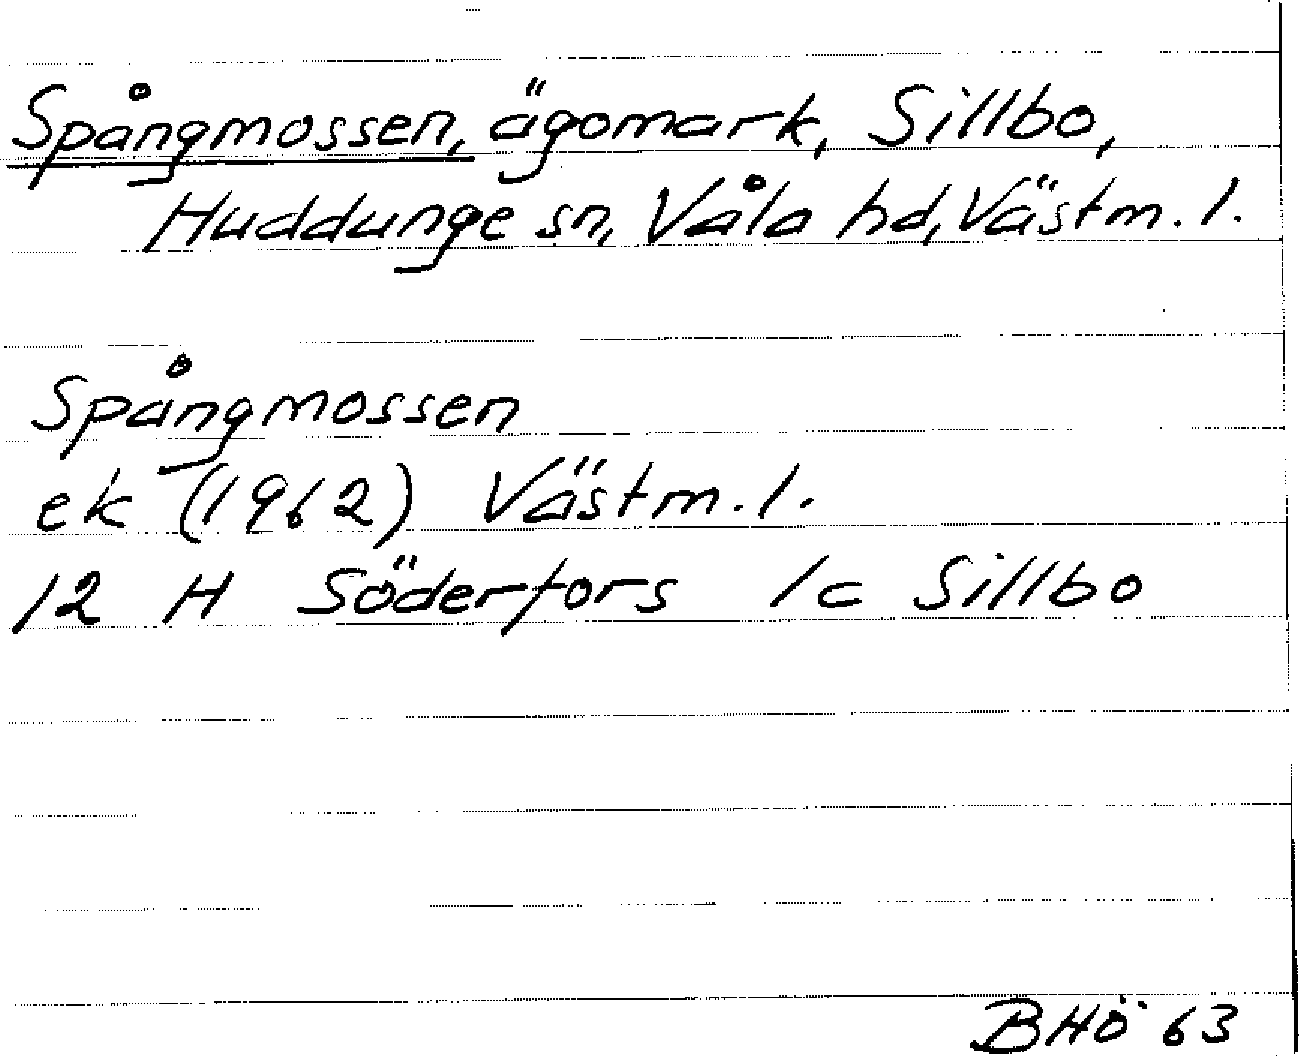 Spångmossen, ägomark, Sillbo,
Huddunge sn, Våla hd, Västm. l.
Spångmossen
ek (1962) Västm. l.
12 H Söderfors 1c Sillbo
BHÖ 63